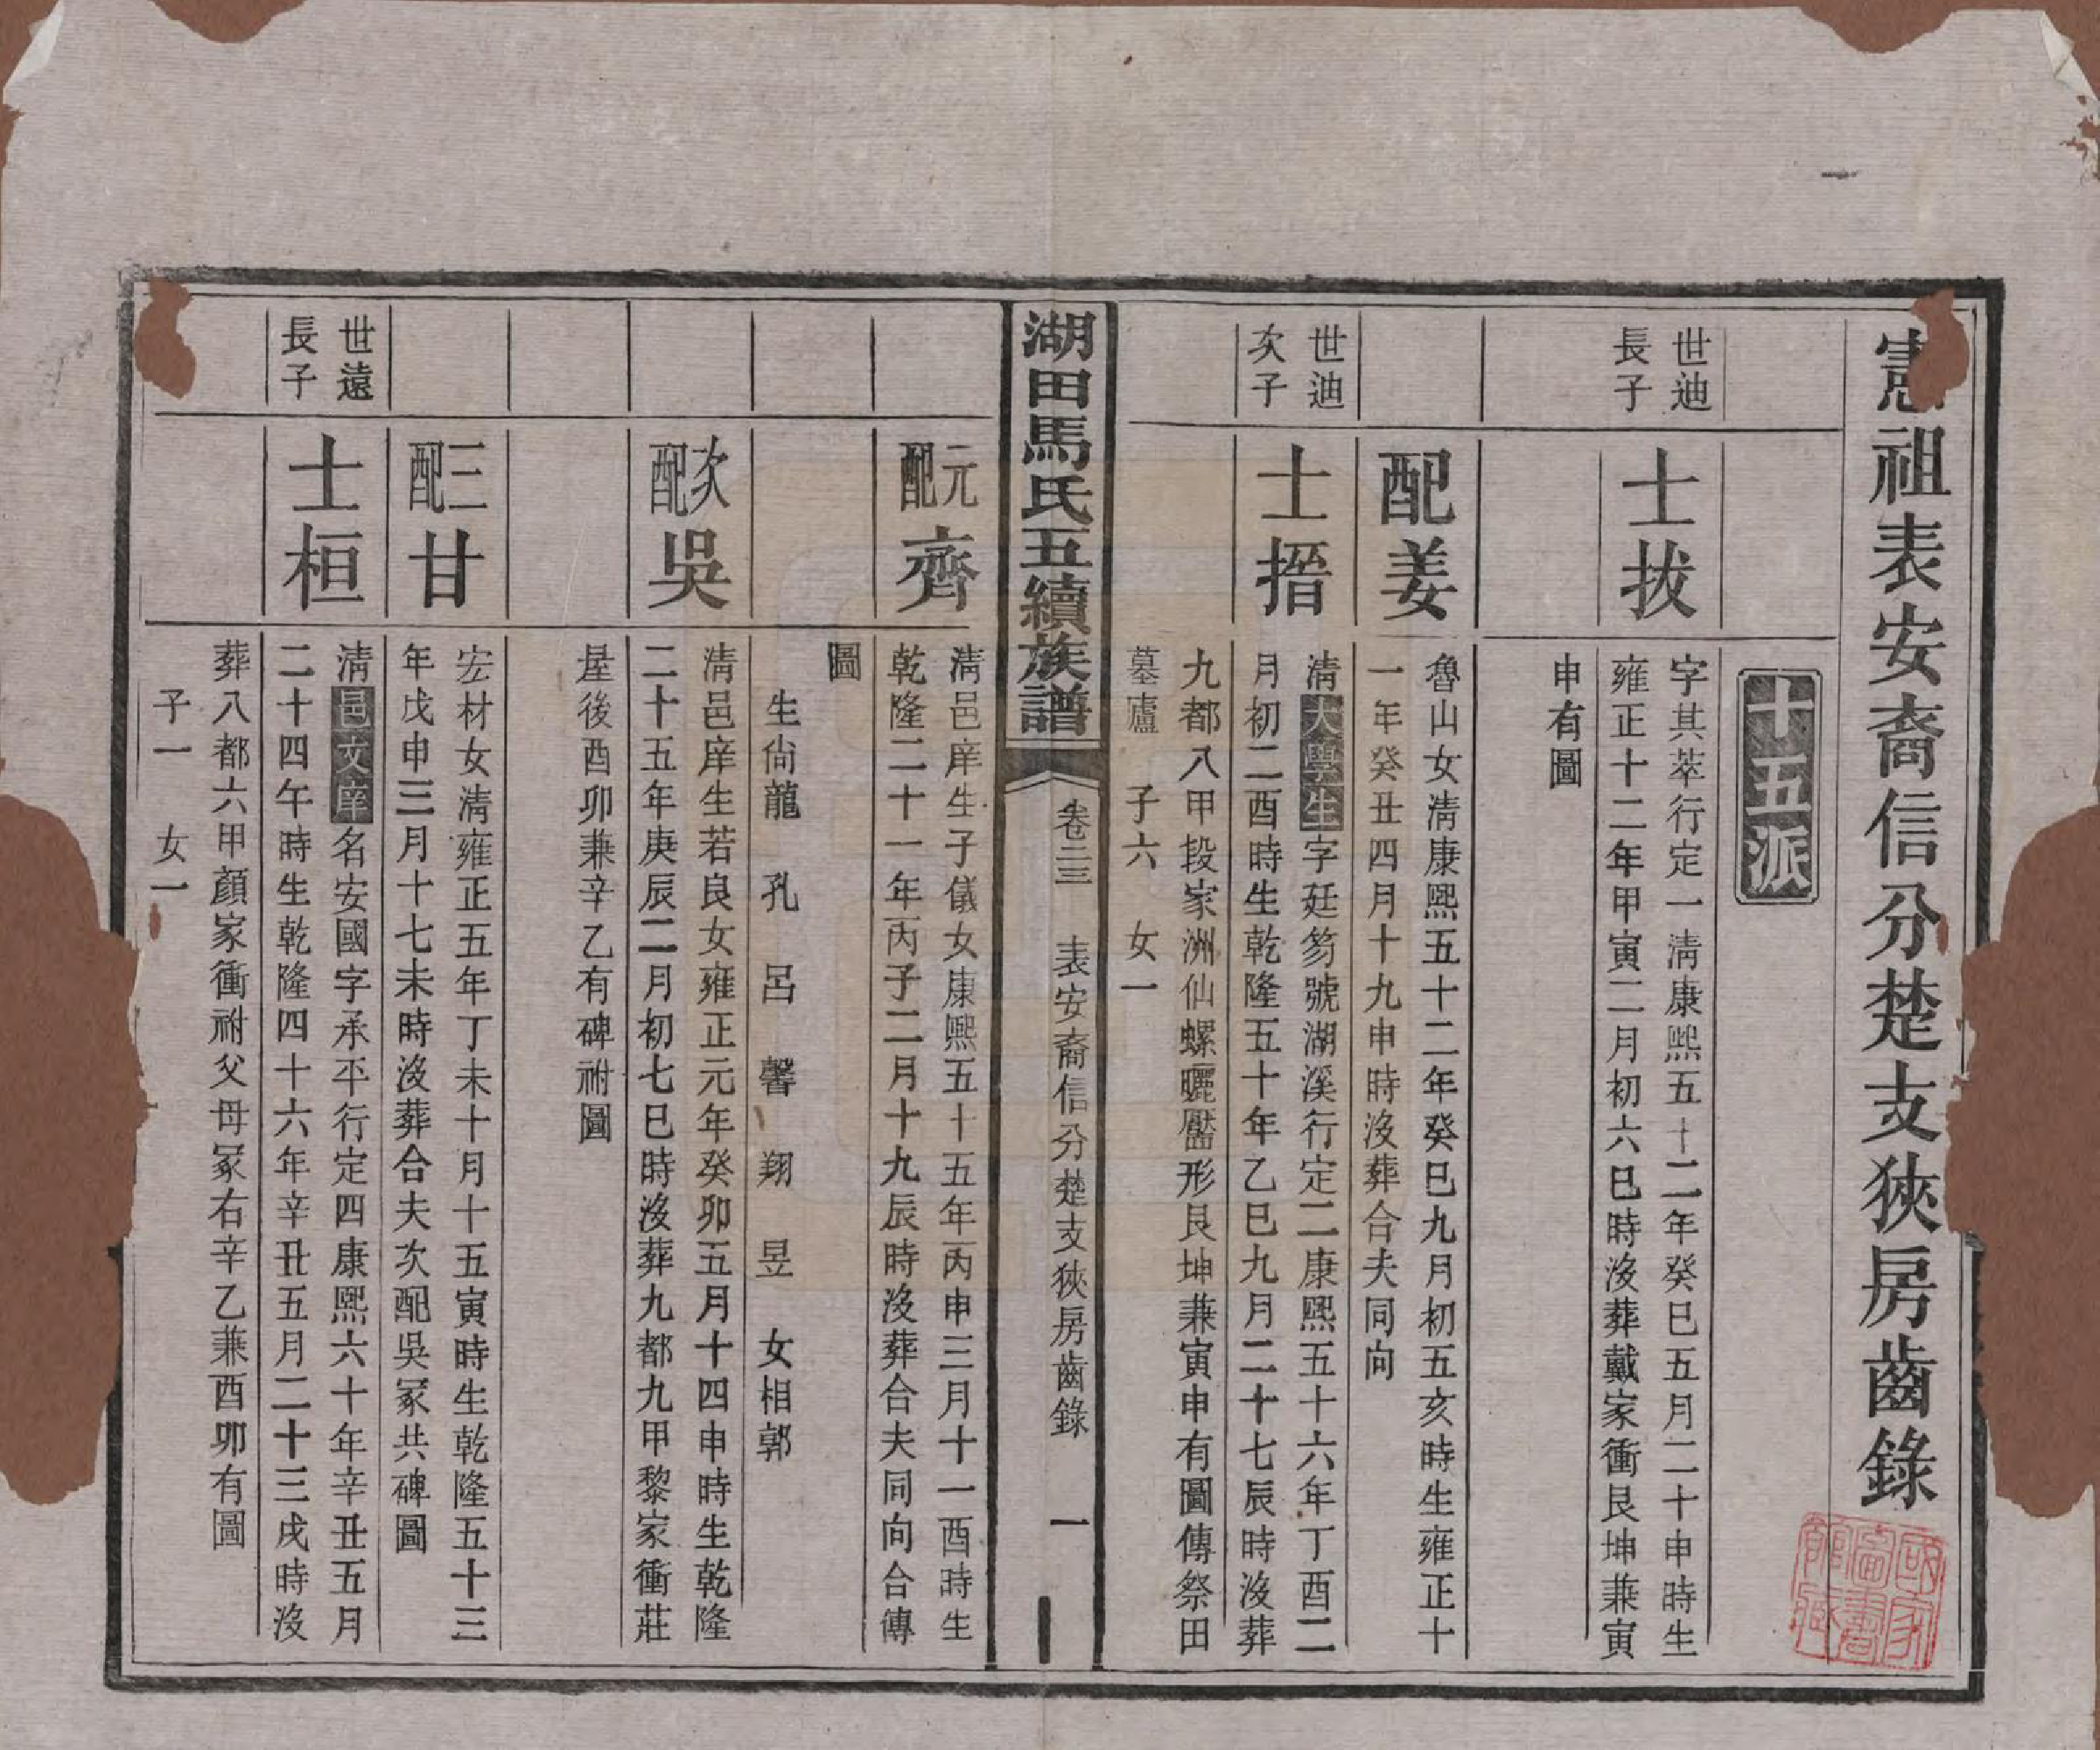 憲祖表安裔信分楚支狹房齒錄
十五派
世迪
長子
士拔
字其萃行定一淸康熙五十二年癸巳五月二十申時生
雍正十二年甲寅二月初六巳時沒葬戴家衝艮坤兼寅
申有圖
配姜
魯山女淸康熙五十二年癸巳九月初五亥時生雍正十
一年癸丑四月十九申時沒葬合夫同向
世迪
次子
士搢
淸大學生字廷笏號湖溪行定二康熙五十六年丁酉二
月初二酉時生乾隆五十年乙巳九月二十七辰時沒葬
九都八甲段家洲仙螺曬靨形艮坤兼寅申有圖傳祭田
墓廬 子六 女一
湖田馬氏五續族譜
卷二三 表安裔信分楚支狹房齒錄 一
元配齊
淸邑庠生子儀女康熙五十五年丙申三月十一酉時生
乾隆二十一年丙子二月十九辰時沒葬合夫同向合傳
圖
生尙龍 孔 呂 馨 翔 昱 女相郭
次配吳
淸邑庠生若良女雍正元年癸卯五月十四申時生乾隆
二十五年庚辰二月初七巳時沒葬九都九甲黎家衝莊
屋後酉卯兼辛乙有碑祔圖
三配甘
宏材女淸雍正五年丁未十月十五寅時生乾隆五十三
年戊申三月十七未時沒葬合夫次配吳冢共碑圖
世遠
長子
士桓
淸邑文庠名安國字承平行定四康熙六十年辛丑五月
二十四午時生乾隆四十六年辛丑五月二十三戌時沒
葬八都六甲顏家衝祔父母冢右辛乙兼酉卯有圖
子一 女一
國家圖書館藏